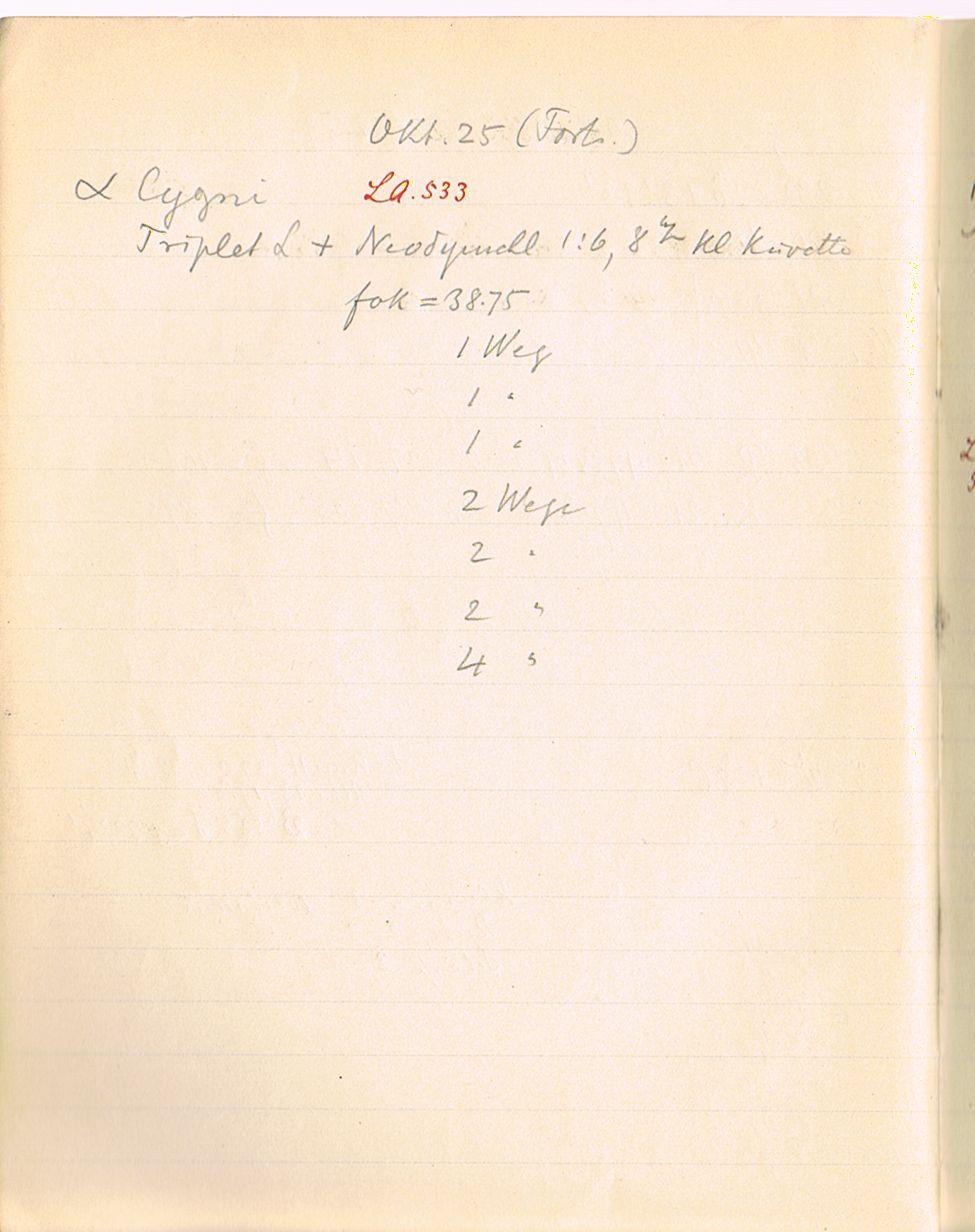 Okt. 25 (Forts.)
α Cygni La. 533
Triplet L + Neodymchl 1:6, 8 kl Küvette
fok = 38.75
1 Weg
1 "
1 "
2 Wege
2 "
2 "
4 "